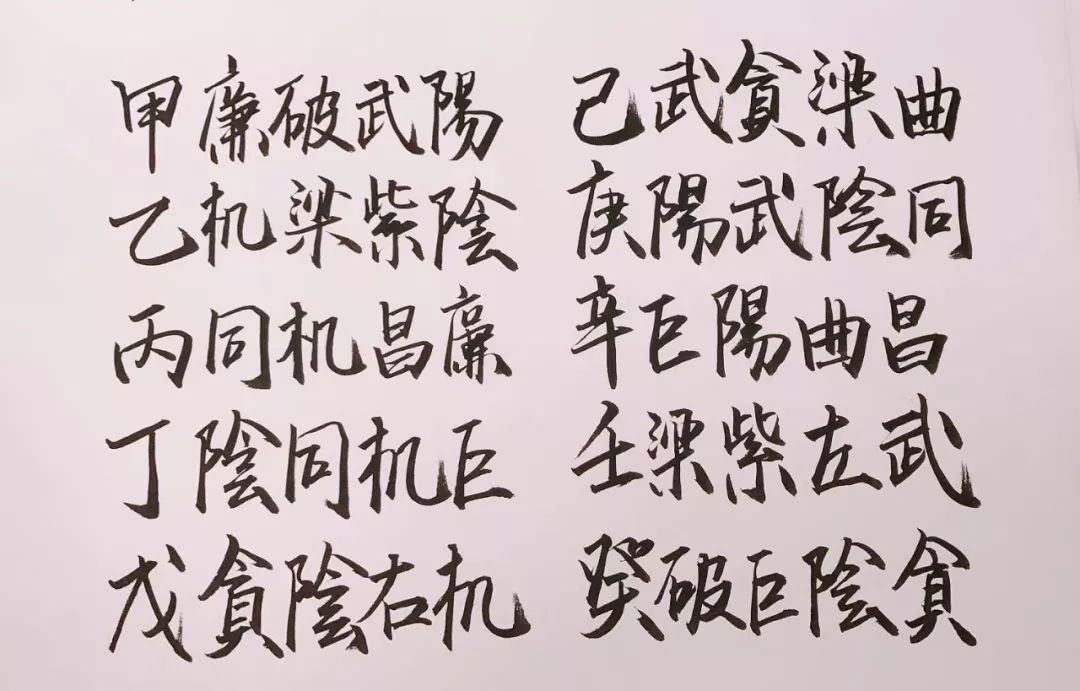 甲廉破武陽
乙机梁紫陰
丙同机昌廉
丁陰同机巨
戊貪陰右机
己武貪梁曲
庚陽武陰同
辛巨陽曲昌
壬梁紫左武
癸破巨陰貪